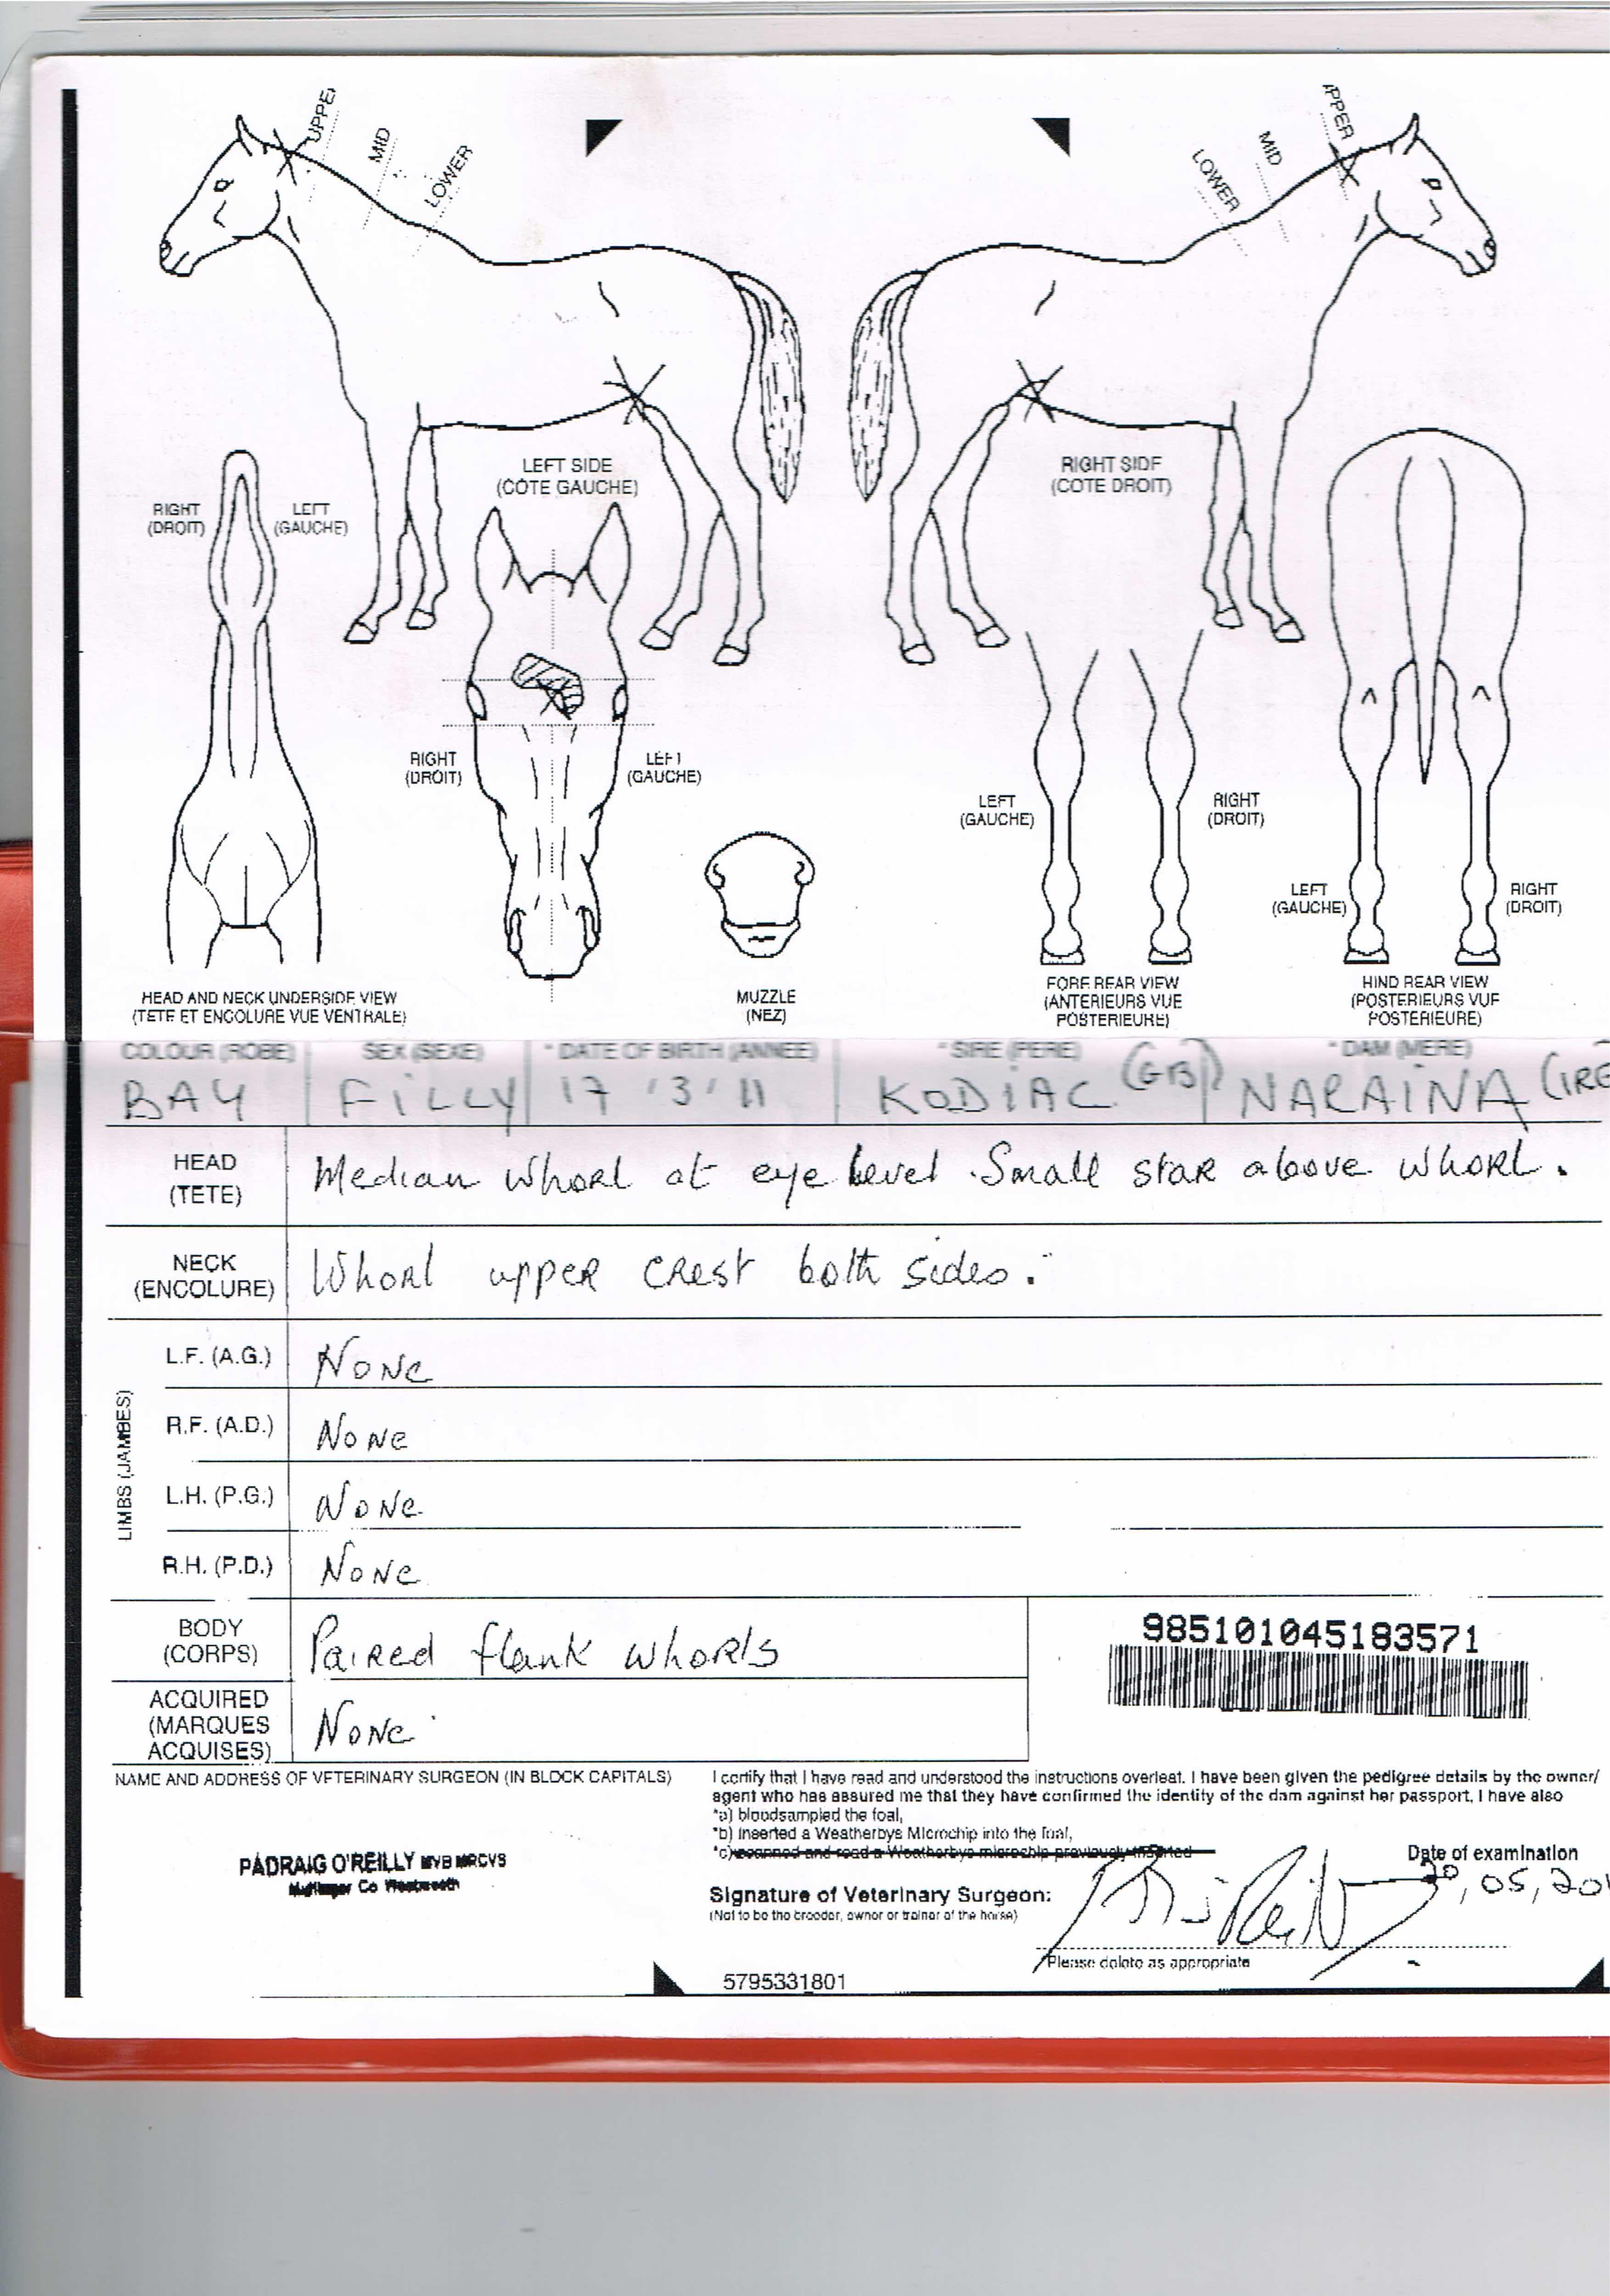 UPPE
MID
LOWER
LOWER
MID
PPER
LEFT SIDE
(CÔTE GAUCHE)
RIGHT SIDE
(COTE DROIT)
RIGHT
(DROIT)
LEFT
(GAUCHE)
RIGHT
(DROIT)
LEFT
(GAUCHE)
LEFT
(GAUCHE)
RIGHT
(DROIT)
LEFT
(GAUCHE)
RIGHT
(DROIT)
HEAD AND NECK UNDERSIDE VIEW
(TETE ET ENCOLURE VUE VENTRALE)
MUZZLE
(NEZ)
FORE REAR VIEW
(ANTERIEURS VUE
POSTERIEURE)
HIND REAR VIEW
(POSTERIEURS VUE
POSTERIEURE)
COLOUR (ROBE) SEX (SEXE) * DATE OF BIRTH (ANNEE) * SIRE (PERE) * DAM (MERE)
BAY FILLY 17 '3 '11 KODIAC (GB) NARAINA (IRE
HEAD
(TETE)
Median whorl at eye level. Small star above whorl.
NECK
(ENCOLURE)
Whorl upper crest both sides.
LIMBS (JAMBES)
L.F. (A.G.) None
R.F. (A.D.) None
L.H. (P.G.) None
R.H. (P.D.) None
BODY
(CORPS)
Paired flank whorls
985101045183571
ACQUIRED
(MARQUES
ACQUISES)
None
NAME AND ADDRESS OF VETERINARY SURGEON (IN BLOCK CAPITALS)
PADRAIG O'REILLY MVB MRCVS
Mullingar Co Westmeath
I certify that I have read and understood the instructions overleaf. I have been given the pedigree details by the owner/
agent who has assured me that they have confirmed the identity of the dam against her passport, I have also
*a) bloodsampled the foal,
*b) inserted a Weatherbys Microchip into the foal,
*c) scanned and read a Weatherbys microchip previously inserted
Date of examination
20, 05, 201
Signature of Veterinary Surgeon:
(Not to be the breeder, owner or trainer of the horse)
*Please delete as appropriate
5795331801